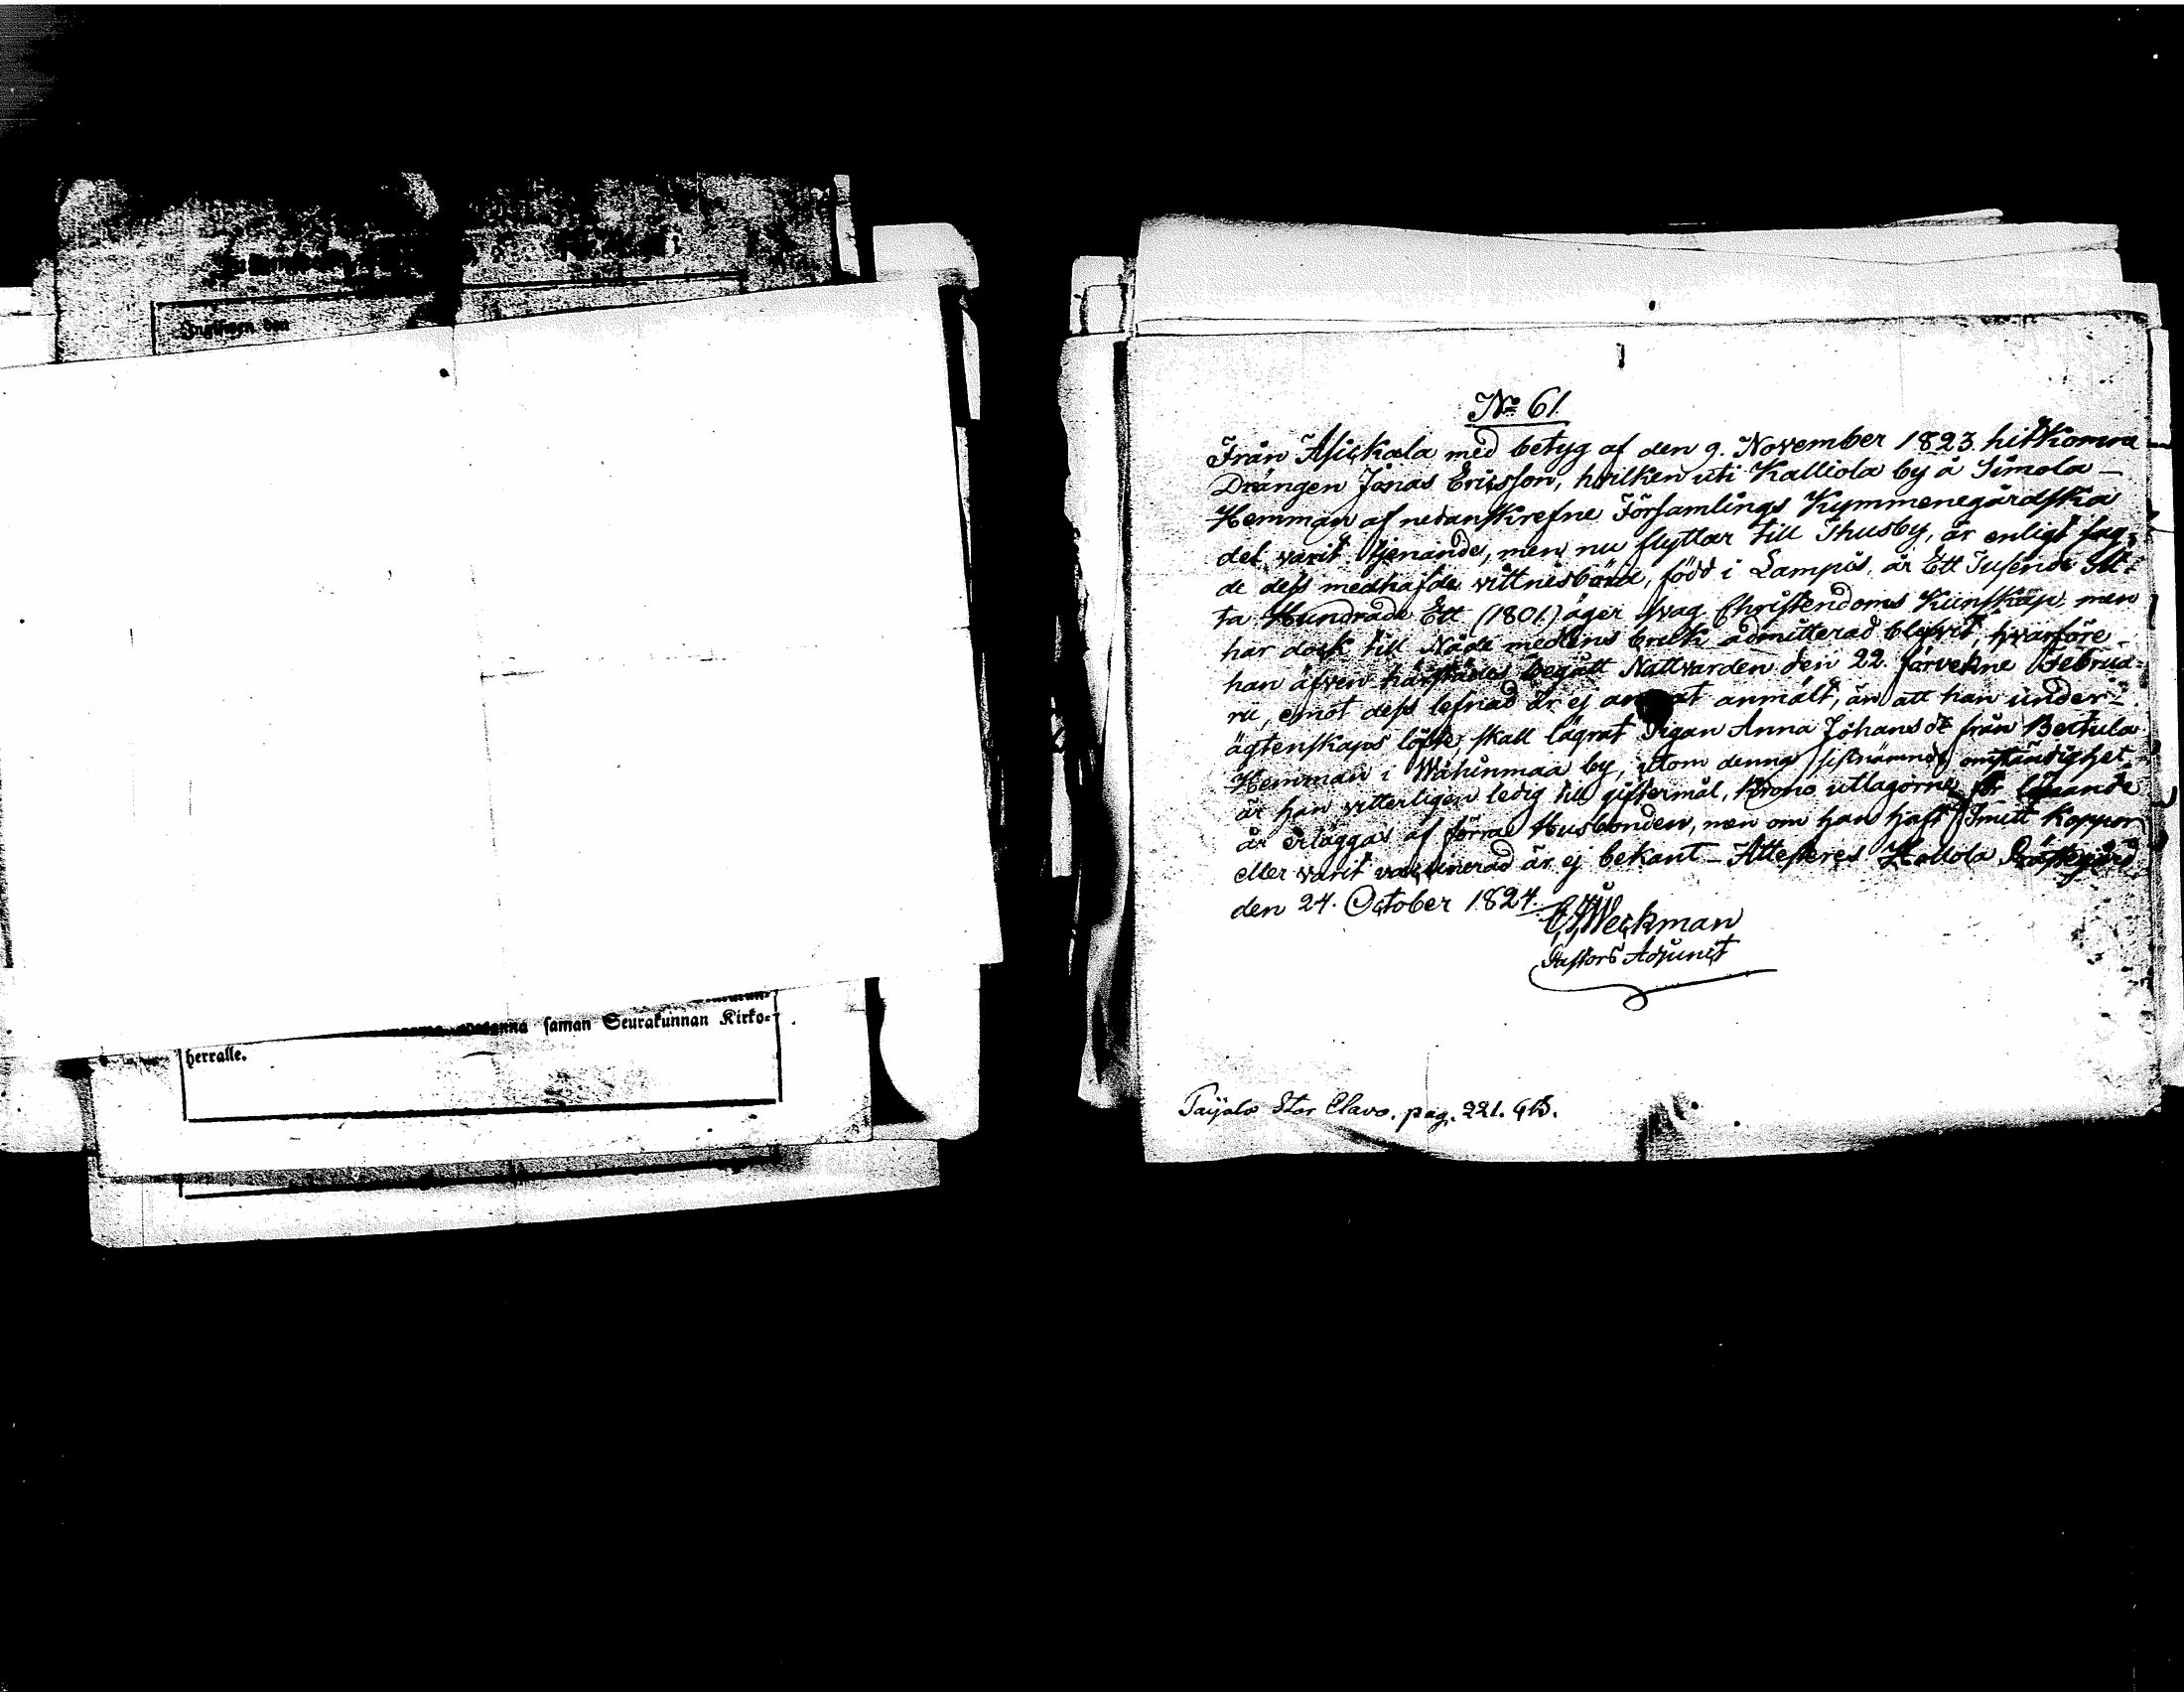 Inglisen den
saman Seurakunnan Kirko-
herralle.
No 61
Från Asickala med betyg af den 9. November 1823 hitkomne
Drängen Jonas Ericsson, hvilken uti Kalliola by å Simola
Hemman af nedanskrefne Församlings Kymmenegårdska
del varit tjenande, men nu flyttar till Thusby, är enligt sag-
de dess medhafde vittnesbörd, född i Lampis, år Ett Tusende At-
ta Hundrade Ett (1801) äger svag Christendoms Kunskap, men
har dock till Nådemedlens bruk admitterad blifvit, hvarföre
han äfven härstädes begått Nattvarden den 22. Februa-
rii, emot dess lefnad är ej annat anmält, än att han under
ägtenskaps löfte, skall lägrat Pigan Anna Johansdr från Bertula
Hemman i Wåhinmaa by, utom denna sistnämnde omständighet
är han vitterligen ledig till giftermål, Krono utlagorne för löpande
år erläggas af förra Husbonden, men om han haft Smitt Koppor
eller varit vaccinerad är ej bekant - Attesteres Hollola Prästegård
den 24. October 1824.
Weckman
Pastors Adjunct
Paijala Stor Clavo. pag. 221.